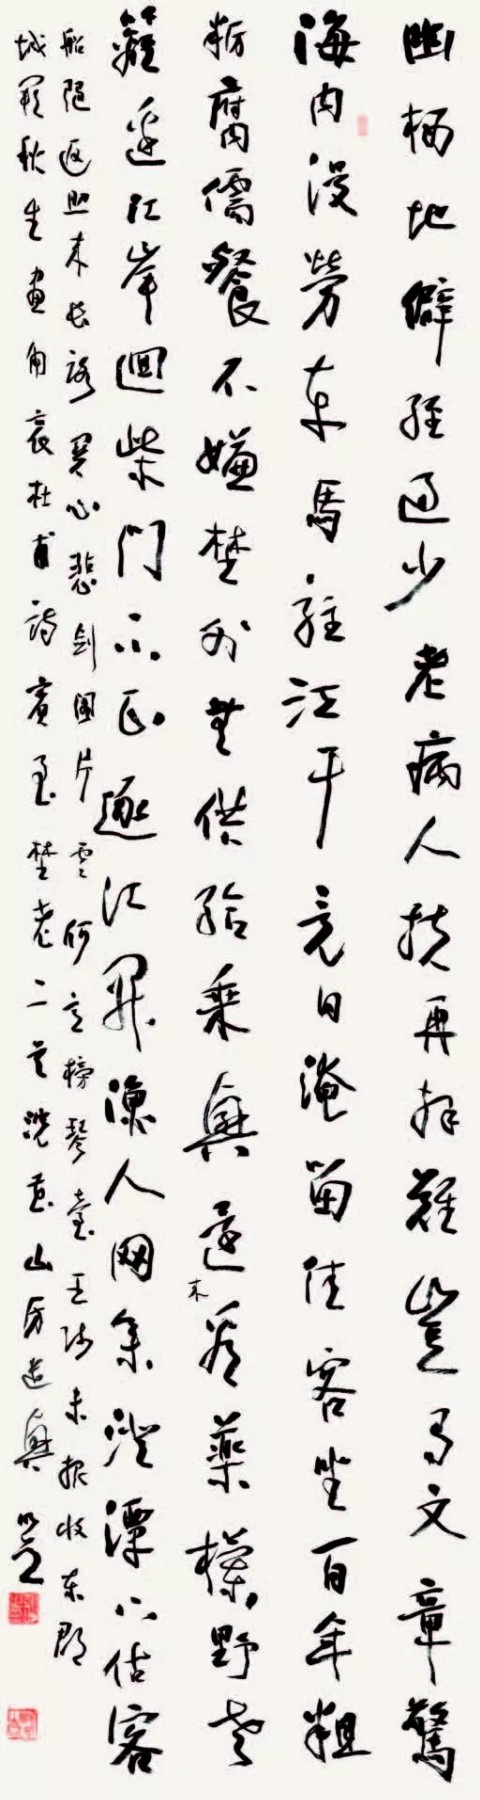 幽栖地僻經過少老病人扶再拜難豈有文章驚
海内漫勞車馬駐江干竟日淹留佳客坐百年粗
粝腐儒餐不嫌埜外無供給乘興還来看藥欄野老
籬邊江岸迴柴門不正逐江開漁人网集澄潭下估客
船隨返照来長路関心悲劍閣片雲何意榜琴臺王師未報收東郡
城闕秋生畫角哀杜甫詩賓至埜老二首山房遣興